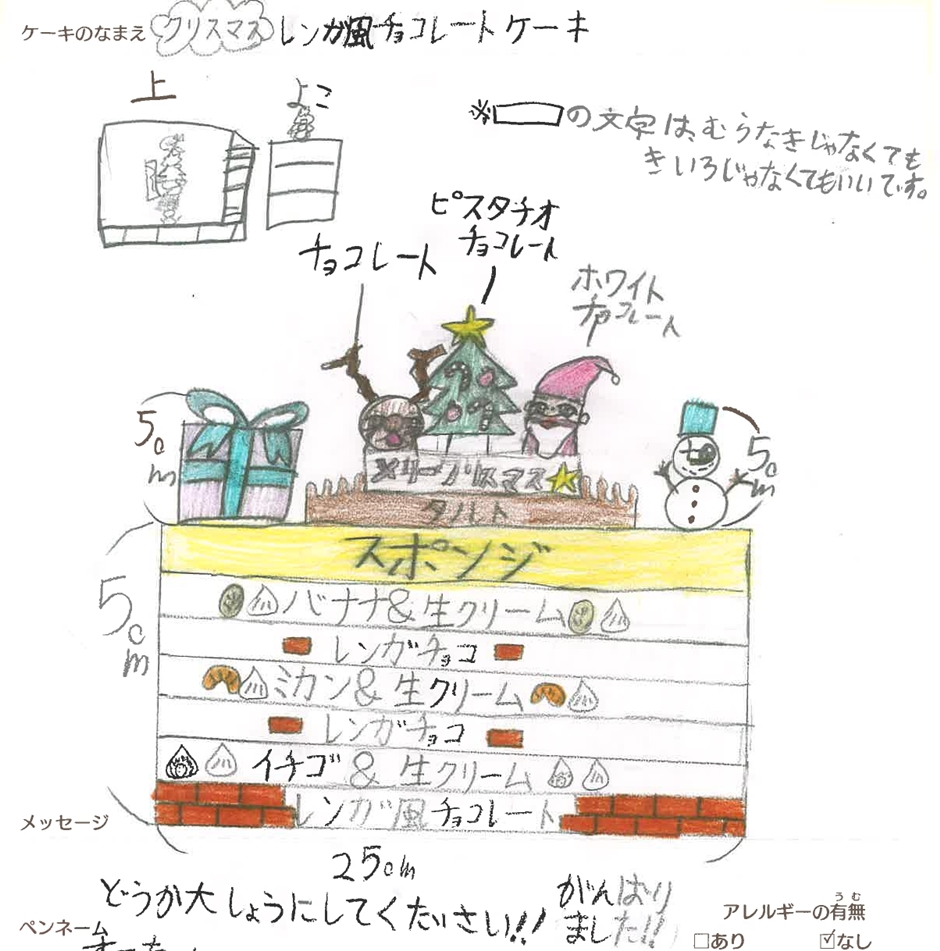 ケーキのなまえ クリスマス レンガ風チョコレートケーキ
上
よこ
※ の文字は、むらさきじゃなくても
きいろじゃなくてもいいです。
ピスタチオ
チョコレート
チョコレート
ホワイト
チョコレート
5cm
5cm
メリークリスマス
タルト
スポンジ
バナナ&生クリーム
レンガチョコ
5cm
ミカン&生クリーム
レンガチョコ
イチゴ&生クリーム
レンガ風チョコレート
メッセージ
25cm
どうか大しょうにしてください!!
がんばり
ました!!
ペンネーム
アレルギーの有無
うむ
□あり ☑なし